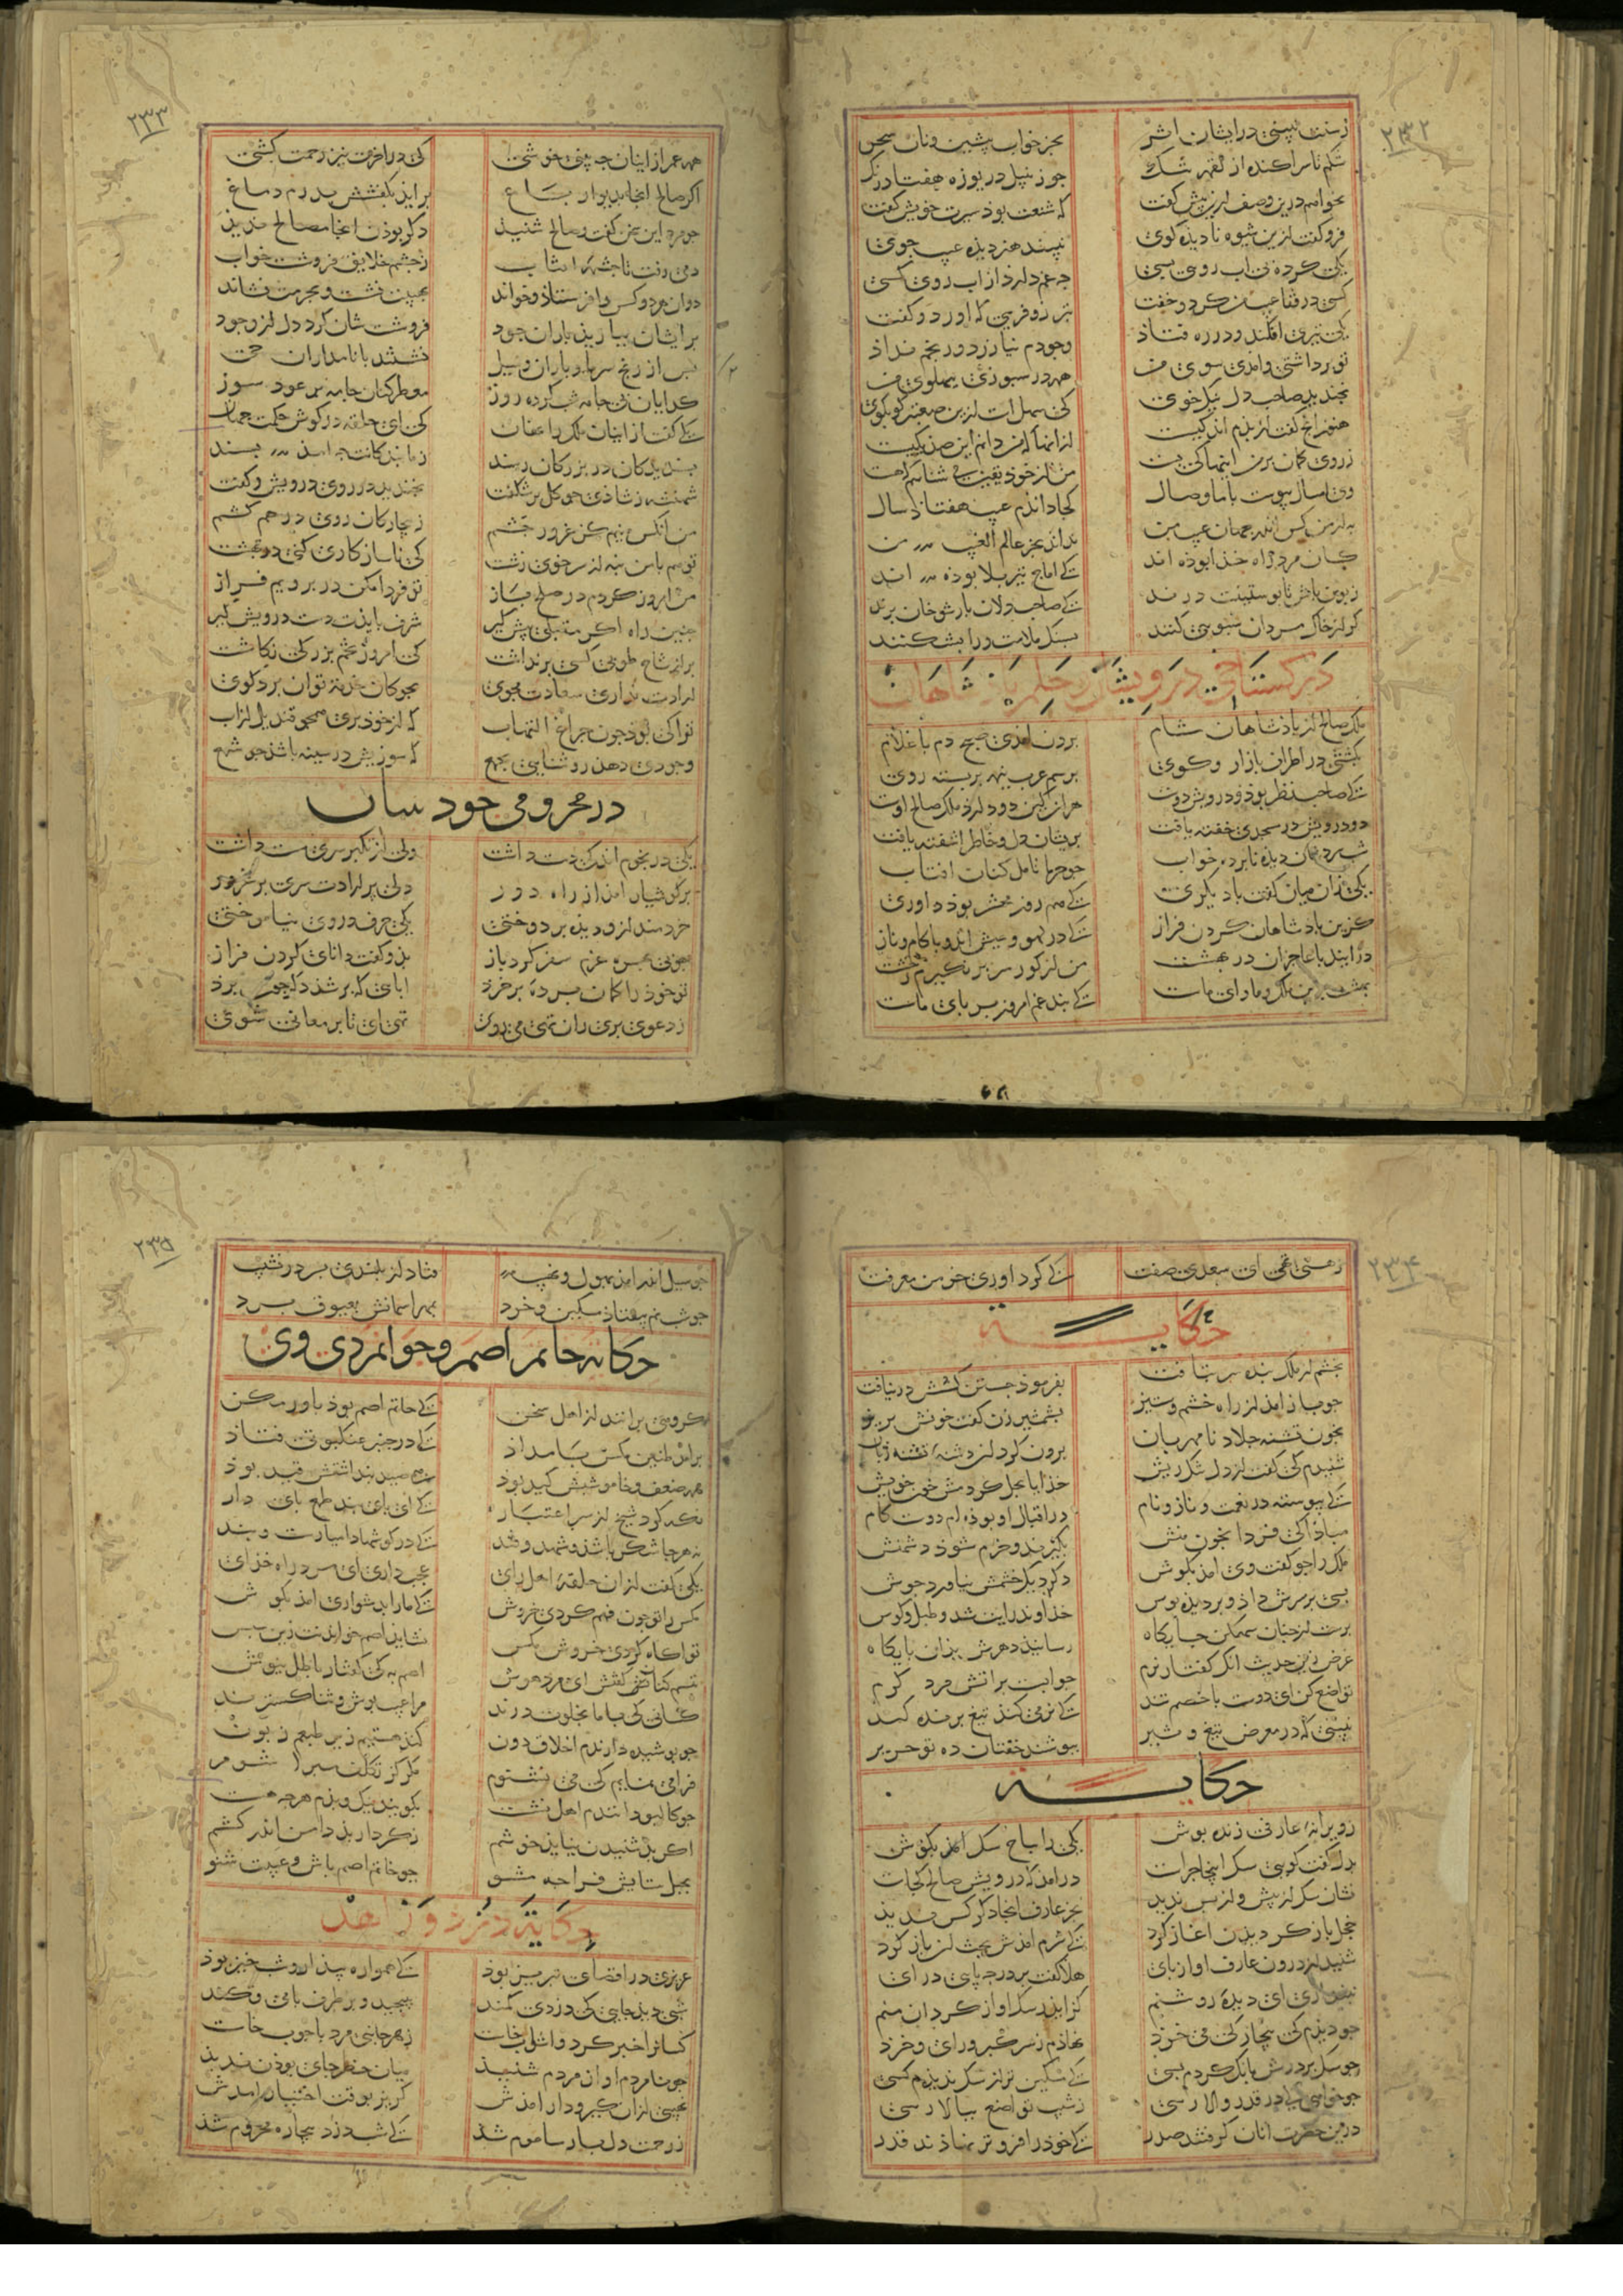 ۲۳۲
ز سنت نبینی در ایشان اثر بجز خواب پیشین و نان سحر
شکم تا سر آکنده از لقمه تنگ جو زنبیل دریوزه هفتاد رنگ
نخواهم درین وصف ازین بیش گفت که شنعت بود سیرت خویش گفت
فرو گفت ازین شیوه نادیده کوی نبیند هنر دیده عیب جوی
یکی کرده بی آب روی بسی جه غم دارد از آب روی کسی
کسی در قفا عیب من کرد و خفت بتر زو قرینی که آورد و گفت
یکی تیری افکند و در ره فتاذ وجودم نیازرد و رنجم نداذ
تو برداشتی و امدی سوی من همی در سبوزی ببهلوی من
بخندید صاحب دل نیک خوی کی سهلست ازین صعبتر کو بکوی
هنوز انج گفت از بدم اندکیست از انها که من دانم این صد یکیست
ز روی کمان بر من اینها کی بست من از خود یقین می شناسم که هست
وی امسال پیوست با ما وصال کجا داندم عیب هفتاذ سال
به از من کس اندر جهان عیب من نداند بجز عالم الغیب من
کسان مرد راه خذا بوذه اند کی اماج تیر بلا بوذه اند
زبون باش تا بوستینت درند کی صاحب دلان بار شوخان برند
کر از خاک مردان سبویی کنند بسنک ملامت ورا بشکنند
در کستاخی درویشان و حلم باذشاهان
ملک صالح از باذشاهان شام برون امذی صبح دم با غلام
بکشتی در اطراف بازار و کوی برسم عرب نیمه بر بسته روی
کی صاحب نظر بوذ و درویش دوست هر انک این دو دارذ ملک صالح اوست
دو درویش در مسجدی خفته یافت بریشان دل و خاطر اشفته یافت
شب سردشان دیده نابرده خواب جو حربا تامل کنان افتاب
یکی زان میان گفت با دیگری کی هم روز محشر بوذ داوری
کر این باذشاهان کردن فراز کی در لهو و عیش اند و با کام و ناز
در ایند با عاجزان در بهشت من از کور سر بر نکیرم ز خشت
بهشت برین ملک و ماوای ماست کی بند غم امروز بر بای ماست
۲۳۳
همه عمر از اینان جه بینی خوشی کی در اخرت نیز زحمت کشی
اکر صالح انجا بدیوار باغ براید بکفشش بدرم دماغ
جو مرد این سخن گفت و صالح شنید دکر بوذن انجا مصالح ندید
دمی رفت تا جشمه افتاب ز جشم خلایق فرو شست خواب
دوان هر دو کس را فرستاذ و خواند بهیبت نشست و بحرمت نشاند
بر ایشان ببارید باران جود فرو شست شان کرد دل از وجود
بس از رنج سرما و باران و سیل نشستند با نامداران خیل
کدایان بی جامه شب کرده روز معطر کنان جامه بر عود سوز
یکی گفت از اینان ملک را نهان کی ای حلقه در کوش حکمت جهان
بسندیدکان در بزرکی رسند ز ما بندکانت جه امذ بسند
شهنشه ز شاذی جو کل بر شکفت بخندید در روی درویش و گفت
من انکس نیم کز غرور حشم ز بیچارکان روی در هم کشم
تو هم با من بنه از سر خوی زشت کی ناسازکاری کنی در بهشت
من امروز کردم در صلح باز تو فردا مکن در برویم فراز
جنین راه اکر مقبلی بیش کیر شرف بایذت دست درویش کیر
بر از شاخ طوبی کسی برنداشت کی امروز تخم بزرکی نکاشت
ارادت نداری سعادت مجوی بجوکان خدمت توان برد کوی
ترا کی بوذ جون جراغ التهاب که از خود بری همجو قندیل از اب
وجودی دهد روشنایی بجمع که سوزیش در سینه باشذ جو شمع
در محرومی خودبینان
یکی در نجوم اندکی دست داشت ولی از تکبر سری مست داشت
بر کوشیار امذ از راه دور دلی بر ارادت سری بر غرور
خردمند ازو دیذه بر دوختی یکی حرف در وی نیاموختی
جو بی بهره عزم سفر کرد باز بذو گفت دانای کردن فراز
تو خود را کمان برده بر خرد انای که بر شذ دکر جون برد
ز دعوی بری زان تهی می روی تهی ای تا بر معانی شوی
۲۳۴
ز هستی تهی ای سعدی صفت کی کرد اوری خرمن معرفت
حکایة
بخشم از ملک بنده سر بتافت بفرموذ جستن کسش در نیافت
جو باز امذ از راه خشم و ستیز بشمشیر زن گفت خونش بریز
بخون تشنه جلاد نامهربان برون کرد از دشنه تشنه زبان
شنیدم کی گفت از دل تنک ریش خذایا بحل کردمش خون خویش
کی بیوسته در نعمت و ناز و نام در اقبال او بوذه ام دوست کام
مباذا کی فردا بخون منش بکیرند و خرم شود دشمنش
ملک را جو گفت وی امذ بکوش دکر دیک خشمش نیاورد جوش
بسی بر سرش داذ و بر دیذه بوس خذاوند رایت شد و طبل و کوس
برست از جنان سهمکن جایکاه رسانید دهرش بذان بایکاه
غرض زین حدیث انک گفتار نرم جو ابست بر اتش مرد کرم
تواضع کن ای دوست با خصم تند کی نرمی کند تیغ برنده کند
نبینی که در معرض تیغ و تیر ببوشند خفتان ده تو حریر
حکایة
ز ویرانه عارفی زنده بوش یکی را نباح سک امذ بکوش
بدل گفت کویی سک اینجا جراست در امذ که درویش صالح کجاست
نشان سک از بیش و از بس ندید بجز عارف انجا دکر کس ندید
خجل باز کردیدن اغاز کرد کی شرم امذش بحث ان راز کرد
شنید از درون عارف اواز بای هلا گفت بر در جه بایی در ای
نبنداری ای دیده روشنم کز ایدر سک اواز کرد ان منم
جو دیذم کی بیچارکی می خرذ نهاذم ز سر کبر و رای و خرد
جو سک بر درش بانک کردم بسی کی مسکین تر از سک ندیذم کسی
جو خواهی که در قدر والا رسی ز شیب تواضع ببالا رسی
درین حضرت انان کرفتند صدر کی خوذ را فروتر نهاذند قدر
۲۳۵
جو سیل اندر امذ بهول و نهیب فتاد از بلندی بسر در نشیب
جو شبنم بیفتاذ مسکین و خرد بمهر اسمانش بعیوق برد
حکایة حاتم اصم و جوانمردی وی
کروهی برانند از اهل سخن کی حاتم اصم بوذ باور مکن
بر امذ طنین مکس بامداذ کی در جنبر عنکبوتی فتاذ
همه ضعف و خاموشیش کید بوذ مکس صید بنداشتش قید بوذ
نکه کرد شیخ از سر اعتبار کی ای بای بند طمع بای دار
نه هر جا شکر باشذ و شهد و قند کی در کوشها دامیارست و بند
یکی گفت از ان حلقه اهل رای عجب دارم ای مرد راه خذای
مکس را تو جون فهم کردی خروش کی ما را بدشواری امذ بکوش
تو اکاه کردی خروش مکس نشاید اصم خواندنت زین سبس
تبسم کنان گفتش ای مرد هوش اصم به کی گفتار باطل نیوش
کسانی کی با ما بخلوت درند مرا عیب بوش و ثنا کسترند
جو بوشیده دارندم اخلاق دون کند هستیم زیر طبعم زبون
فرا می نمایم کی می نشنوم مکر کز تکلف مبرا شوم
جو کالیو دانندم اهل نشست بکویند نیک و بدم هر جه هست
اکر بد شنیدن نیاید خوشم ز کردار بد دامن اندر کشم
بحبل ستایش فراجه مشو جو حاتم اصم باش و عیبت شنو
حکایة دزد و زاهد
عزیزی در اقصای تبریز بوذ کی همواره بیذار و شب خیز بوذ
شبی دید جایی کی دزدی کمند ببیچید و بر طرف بامی فکند
کسانرا خبر کرد و اشوب خاست ز هر جانبی مرد با جوب خاست
جو نامردم اواز مردم شنیذ میان خطر جای بوذن ندید
نهیبی ازان کیر و دار امذش کریز بوقت اختیار امدش
ز رحمت دل بارسا موم شذ کی شب دزد بیچاره محروم شذ